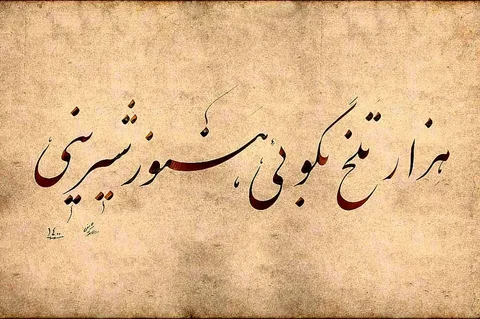 هزار تلخ بگویی هنوز شیرینی
۱۴۰۰